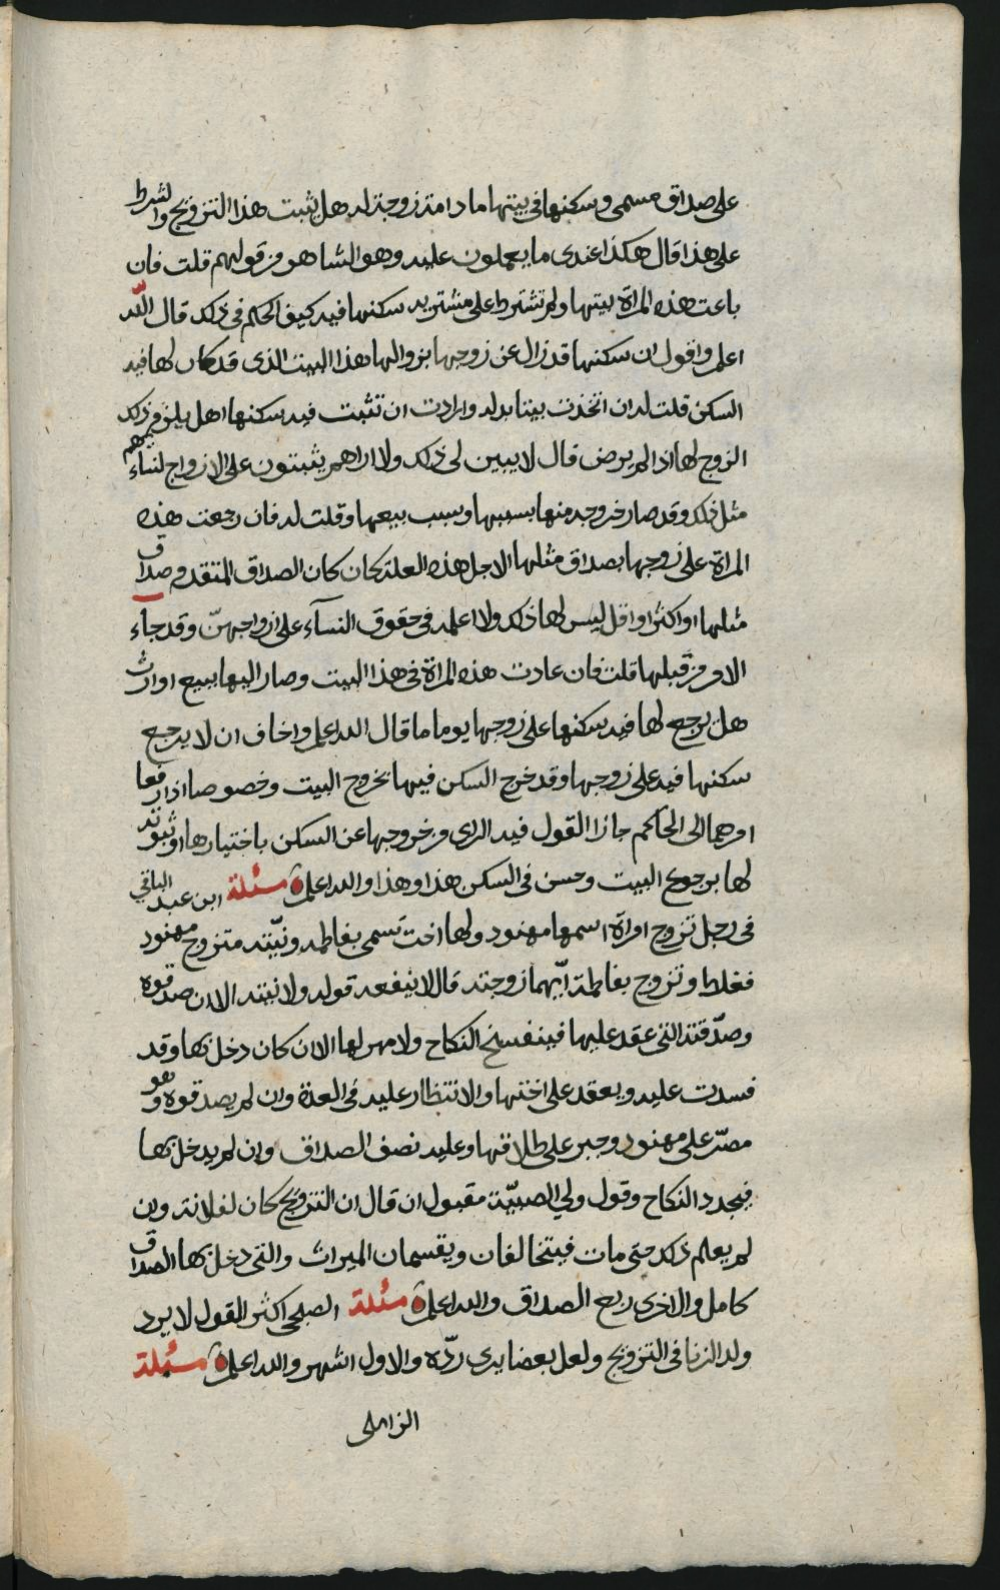 على صداق مسمى وسكنها في بيتها ما دامت زوجة له هل يثبت هذا التزويج والشرط
على هذا قال هكذا عندي ما يعملون عليه وهو الشاهر من قولهم قلت فان
باعت هذه المراة بيتها ولم تشترط على مشتريه سكنها فيه كيف الحكم في ذلك قال الله
اعلم واقول ان سكنها قد زال عن زوجها بزوالها هذا البيت الذي قد كان لها فيه
السكن قلت له ان اتخذت بيتا بدله وارادت ان تثبت فيه سكنها اهل يلزم ذلك
الزوج لها اذا لم يرض قال لا يبين لي ذلك ولا اراهم يثبتون على الازواج لنسائهم
مثل ذلك وقد صار خروجه منها بسببها وسبب بيعها وقلت له فان رجعت هذه
المراة على زوجها بصداق مثلها الاجل هذه العلة كان كان الصداق المتقدم صداق
مثلها او اكثر او اقل ليس لها ذلك ولا اعلمه في حقوق النسآء على ازواجهنّ وقد جاء
الامر من قبلها قلت فان عادت هذه المراة في هذا البيت وصار اليها ببيع او ارث
هل يرجع لها فيه سكنها على زوجها يوما ما قال الله اعلم واخاف ان لا يرجع
سكنها فيه على زوجها وقد خرج السكن فيها بخروج البيت وخصوصا اذا رفعا
امرهما الى الحاكم جازا القول فيه الراى من خروجها عن السكن باختيارها او ثبوته
لها برجوع البيت وحسن في السكن هذا وهذا والله اعلم مسئلة ابن عبد الباقي
في رجل تزوج امراة اسمها مهنود ولها اخت تسمى بفاطمه ونيّته متزوج مهنود
فغلط وتزوج بفاطمة ايّهما زوجته قال لا ينفعه قوله ولا نيته الا ان صدقوه
وصدّقته التي عقد عليها فينفسخ النكاح ولا مهر لها الا ان كان دخل بها وقد
فسدت عليه ويعقد على اختها والانتظار عليه في العدة وان لم يصدقوه وهو
مصرّ على مهنود وجبر على طلاقها وعليه نصف الصداق وان لم يدخل بها
فيجدد النكاح وقول ولي الصبيّة مقبول ان قال ان التزويج كان لفلانة وان
لم يعلم ذلك حتى مات فيتخالفان ويقسمان الميراث والتي دخل بها الصداق
كامل والاخرى ربع الصداق والله اعلم مسئلة الصبحي اكثر القول لا يرد
ولد الزنا في التزويج ولعل بعضا يرى ردّه والاول اشهر والله اعلم مسئلة
الزاملي